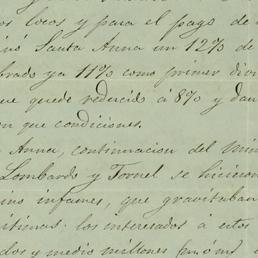 os locos y para el pago de
Santa Anna un 12% de
brado ya 11% como primer divi
que quede reducido á 8% y dan
en que condiciones.
Anna, continuacion del
Lombardo y Tornel se hicieron
infames, que gravitaban
ítimas: los interesados á estos
dos y medio millones